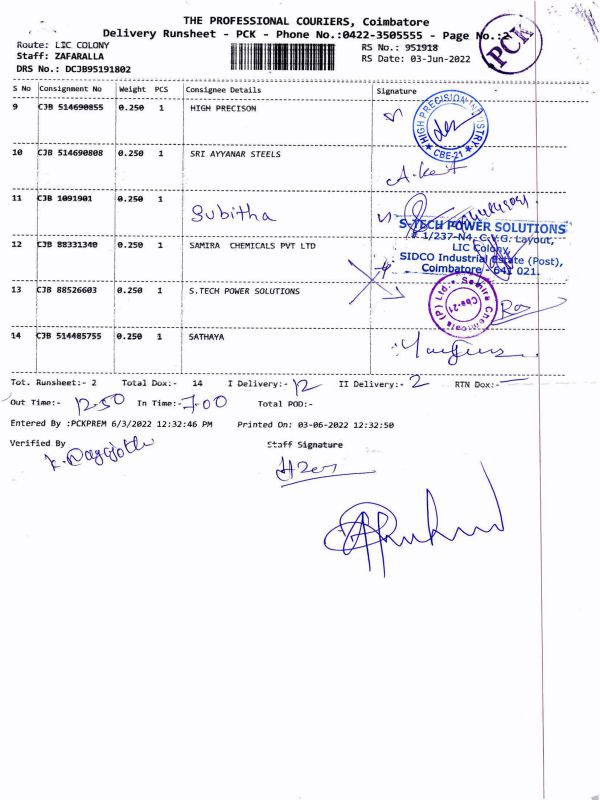 THE PROFESSIONAL COURIERS, Coimbatore
Delivery Runsheet - PCK - Phone No.:0422-3505555 - Page No.:2
PCK
Route: LIC COLONY
RS No.: 951918
Staff: ZAFARALLA
RS Date: 03-Jun-2022
DRS No.: DCJB95191802
S No Consignment No Weight PCS Consignee Details Signature
9 CJB 514690855 0.250 1 HIGH PRECISON
HIGH PRECISION INDUSTRY
CBE-21
10 CJB 514690808 0.250 1 SRI AYYANAR STEELS
11 CJB 1091901 0.250 1 Subitha
S-TECH POWER SOLUTIONS
1/237-N4, C.V.G. Layout,
LIC Colony,
SIDCO Industrial Estate (Post),
Coimbatore - 641 021.
12 CJB 88331340 0.250 1 SAMIRA CHEMICALS PVT LTD
13 CJB 88526603 0.250 1 S.TECH POWER SOLUTIONS
Samira Chemicals (P) Ltd.
Cbe-21
14 CJB 514485755 0.250 1 SATHAYA
Tot. Runsheet:- 2 Total Dox:- 14 I Delivery:- 12 II Delivery:- 2 RTN Dox:- —
Out Time:- 12-50 In Time:- 7-00 Total POD:-
Entered By :PCKPREM 6/3/2022 12:32:46 PM Printed On: 03-06-2022 12:32:50
Verified By Staff Signature